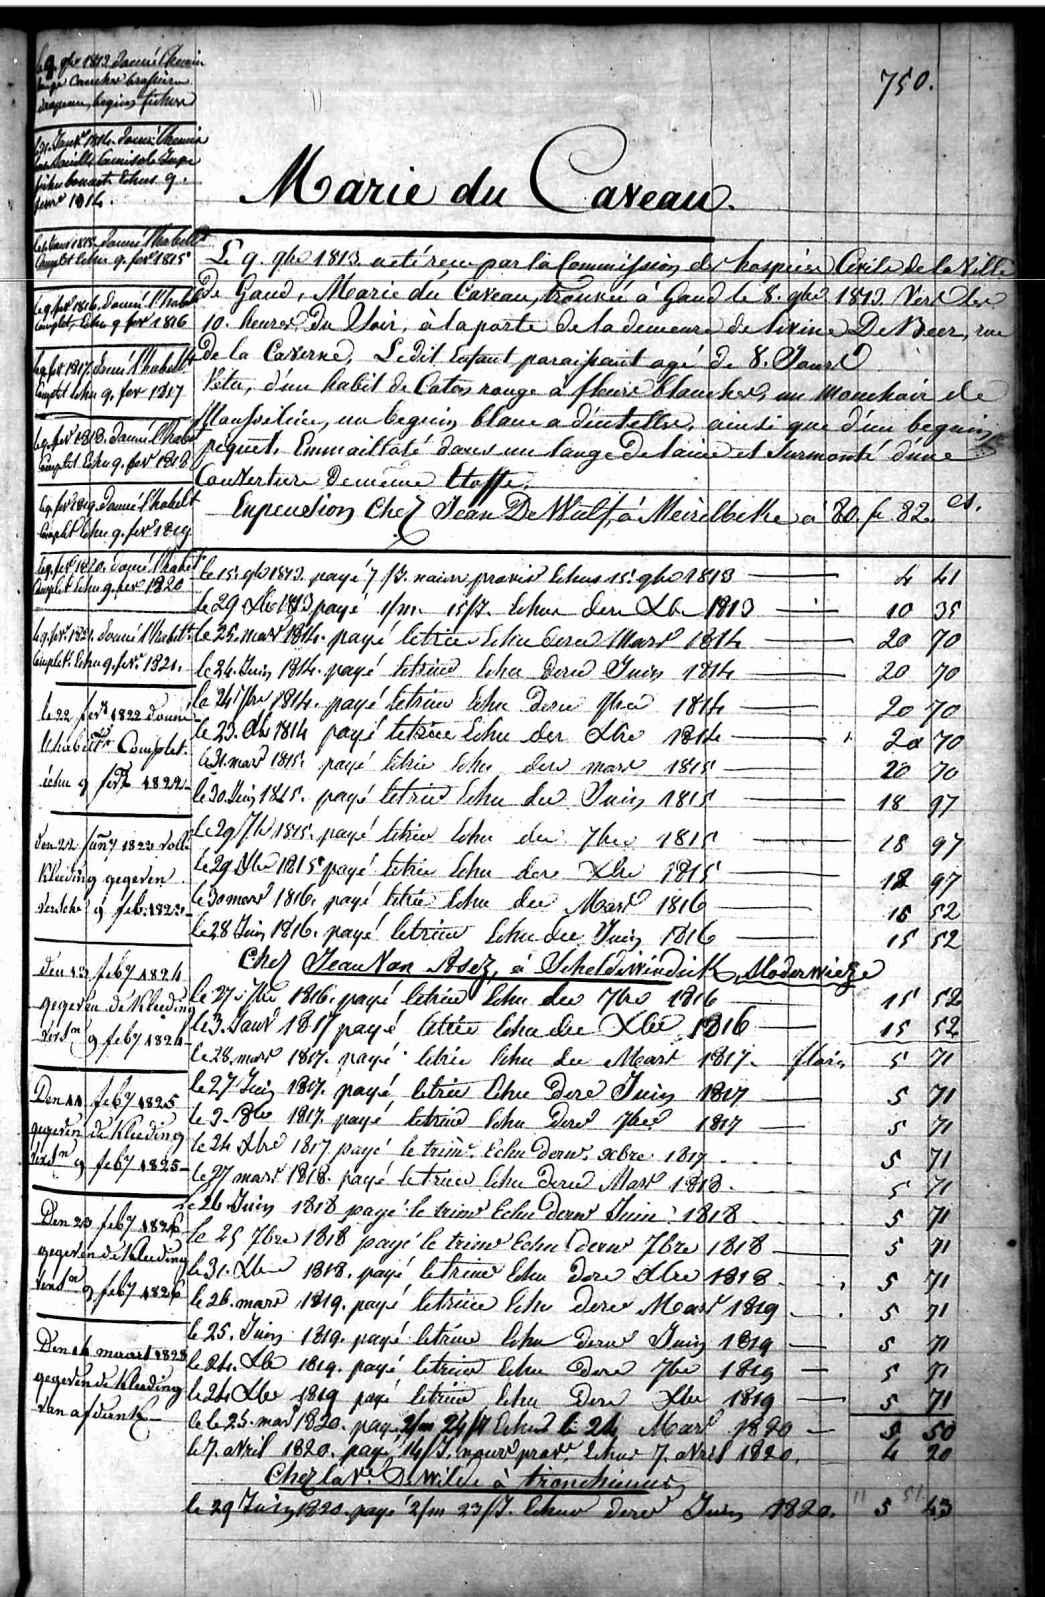 750.
Marie du Caveau.
Le 9. 9bre 1813. a été reçu par la Commission des hospices Civils de la Ville
De Gand, Marie du Caveau, trouvée à Gand le 8. 9bre 1813. Vers les
10. heures du Soir, à la porte de la demeure de Livine De Beer, rue
de la Caverne, Ledit Enfant paraissant agé de 8. Jours
Vetu, d'un habit de Coton rouge a fleurs blanches, un Mouchoir de
Mousseline, un beguin blanc a dentelles, ainsi que d'un beguin
piquet, Emmaillotté dans un lange de laine et Surmonté d'une
Couverture de meme Etoffe.
En pension Chez Jean De Wulf, à Meirelbeke à 80. f. 82. cs.
le 15. 9bre 1813. payé 7/5. Echus 15. 9bre 1813 4 41
le 29 Xbre 1813 payé 1/m 15/J. Echus dere Xbre 1813 10 35
le 25. mars 1814. payé letrice Echu dere Mars 1814 20 70
le 24. Juin 1814. payé letrice Echu dere Juin 1814 20 70
le 24 7bre 1814. payé letrice Echu dere 7bre 1814 20 70
le 23. Xbr 1814 payé letrice Echu der Xbre 1814 20 70
le 31. mars 1815. payé letrice Echu dere mars 1815 20 70
le 30. Juin 1815. payé letrice Echu der Juin 1815 18 97
le 29 7br 1815. payé letrice Echu der 7bre 1815 18 97
le 29 Xbre 1815 payé letrice Echu dere Xbre 1815 18 97
le 30 mars 1816. payé letrice Echu der Mars 1816 15 52
le 28 Juin 1816. payé letrice Echu der Juin 1816 15 52
Chez Jean Van, à Scheldewindick
le 27. 7bre 1816. payé letrice Echu der 7bre 1816 15 52
le 3. Janv 1817 payé letrice Echu der Xbre 1816 15 52
le 28. mars 1817. payé letrice Echu der Mars 1817. florins 5 71
le 27 Juin 1817. payé letrice Echu dere Juin 1817 5 71
le 3. 8bre 1817. payé letrice Echu dere 7bre 1817 5 71
le 24 Xbre 1817 payé le trimr. Echu dernr. xbre. 1817 5 71
le 27 mars 1818. payé letrice Echu dere Mars 1818. 5 71
le 26 Juin 1818 payé le trimr Echu dernr Juin 1818 5 71
le 25 7bre 1818 payé le trimr Echu dernr 7bre 1818 5 71
le 31. Xbre 1818. payé letrice Echu dere Xbre 1818 5 71
le 26. mars 1819. payé letrice Echu dere Mars 1819 5 71
le 25. Juin 1819. payé letrice Echu dernr Juin 1819 5 71
le 24. 1819. payé letrice Echu dere 7bre 1819 5 71
le 24 Xbre 1819 payé letrice Echu dere Xbre 1819 5 71
le 25. mars 1820. payé 2/m 24/J Echus le 24 Mars 1820 5 50
le 7. avril 1820. payé 14/J. Echus 7. avril 1820. 4 20
Chez la Ve. Dewilde à tronchiennes
le 29 Juin 1820. payé 2/m 23/J. Echus dere Juin 1820. 5 43
le 9 9bre 1813 donné 1 hemise
beguin fichus
le 31. Janvr 1814. donné 1 hemise
Echus 9.
fevr 1814.
1815. donné l'habillt
Complet Echu 9. fevr 1815
le 9. fevr 1816. donné l'habillt
Complet, Echu 9 fevr 1816
le 9. fevr 1817. donné l'habillt
Complet Echu 9. fevr 1817
le 9. fevr 1818. donné l'habillt
Complet Echu 9. fevr 1818
le 9. fevr 1819. donné l'habillt
Complet Echu 9. fevr 1819
le 9. fevr 1820. donné l'habillt
Complet Echu 9. fevr 1820
le 9. fevr. 1821. donné l'habillt.
Complet. Echu 9. fevr. 1821.
le 22 fevr 1822 donné
l'habillt Complet.
échu 9 fevr 1822
den 22 1823 volle
Kleeding gegeven
9 feb. 1823
den 13 feby 1824
gegeven de Kleeding
9 feby 1824
Den 11 feby 1825
gegeven de Kleeding
9 feby 1825
Den 23 feby 1826
gegeven de Kleeding
9 feby 1826
Den 14 maart 1828
gegeven de Kleeding